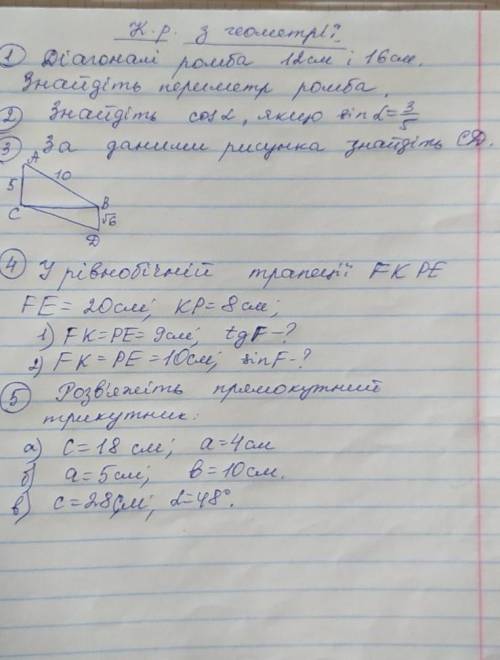 К.р. з геометрії
① Діагоналі ромба 12см і 16см.
Знайдіть периметр ромба.
② Знайдіть cosα, якщо sinα=3/5
③ За даними рисунка знайдіть CD.
A
10
5
C
B
√6
D
④ У рівнобічній трапеції FKPE
FE = 20см; KP = 8см;
1) FK=PE=9см; tgF-?
2) FK=PE=10см; sinF-?
⑤ Розв'яжіть прямокутний
трикутник:
а) c=18 см; a=4см
б) a=5см; b=10см.
в) c=28см; α=48°.